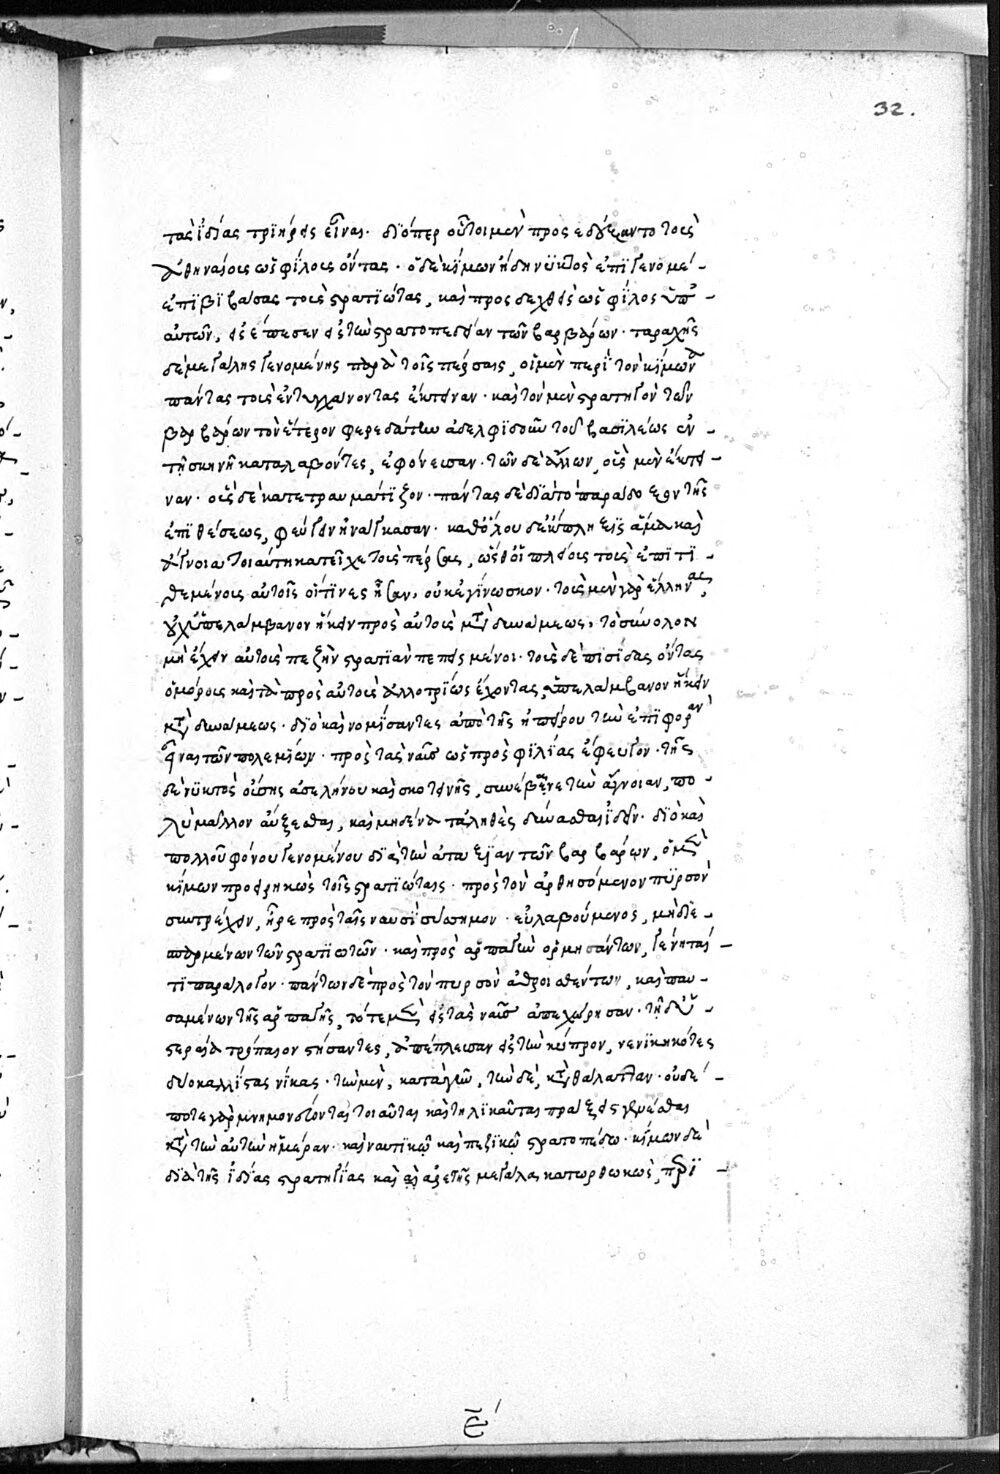 32.
τὰς ἰδίας τριήρεις εἶναι· διόπερ οὗτοι μὲν προσεδέξαντο τοὺς
ἀθηναίους ὡς φίλους ὄντας· ὁ δὲ κίμων ἤδη νυκτὸς ἐπιγενομέ-
ἐπιβιβάσας τοὺς στρατιώτας, καὶ προσδεχθεὶς ὡς φίλος ὑπ’
αὐτῶν, εἰσέπεσεν εἰς τὴν στρατοπεδείαν τῶν βαρβάρων· ταραχῆς
δὲ μεγάλης γενομένης παρὰ τοῖς πέρσαις, οἱ μὲν περὶ τὸν κίμωνα
πάντας τοὺς ἐντυγχάνοντας ἔκτειναν· καὶ τὸν μὲν στρατηγὸν τῶν
βαρβάρων τὸν ἕτερον φερεδάτην ἀδελφιδοῦν τοῦ βασιλέως ἐν
τῇ σκηνῇ καταλαβόντες, ἐφόνευσαν· τῶν δὲ ἄλλων, οὓς μὲν ἔκτει-
ναν· οὓς δὲ κατετραυμάτιζον· πάντας δὲ διὰ τὸ παράδοξον τῆς
ἐπιθέσεως, φεύγειν ἠνάγκασαν· καθόλου δὲ ἔκπληξις ἅμα καὶ
ἄγνοια τοιαύτη κατεῖχε τοὺς πέρσας, ὥσθ’ οἱ πλείους τοὺς ἐπιτι-
θεμένους αὐτοῖς οἵτινες ἦσαν, οὐκ ἐγίνωσκον· τοὺς μὲν γὰρ ἕλληνας,
οὐχ ὑπελάμβανον ἥκειν πρὸς αὐτοὺς μετὰ δυνάμεως, τὸ σύνολον
μὴ ἔχειν αὐτοὺς πεζὴν στρατιὰν πεπεισμένοι· τοὺς δὲ πισίδας ὄντας
ὁμόρους καὶ τὰ πρὸς αὐτοὺς ἀλλοτρίως ἔχοντας, ὑπελάμβανον ἥκειν
μετὰ δυνάμεως· διὸ καὶ νομίσαντες ἀπὸ τῆς ἠπείρου τὴν ἐπιφορὰν
εἶναι τῶν πολεμίων· πρὸς τὰς ναῦς ὡς πρὸς φιλίας ἔφευγον· τῆς
δὲ νυκτὸς οὔσης ἀσελήνου καὶ σκοτεινῆς, συνέβαινε τὴν ἄγνοιαν, πο-
λὺ μᾶλλον αὔξεσθαι, καὶ μηδένα τἀληθὲς δύνασθαι ἰδεῖν· διὸ καὶ
πολλοῦ φόνου γενομένου διὰ τὴν ἀταξίαν τῶν βαρβάρων, ὁ μὲν
κίμων προειρηκὼς τοῖς στρατιώταις· πρὸς τὸν ἀρθησόμενον πυρσὸν
συντρέχειν, ἦρε πρὸς ταῖς ναυσὶ σύσσημον· εὐλαβούμενος, μὴ διε-
σπαρμένων τῶν στρατιωτῶν· καὶ πρὸς ἁρπαγὴν ὁρμησάντων, γένηταί
τι παράλογον· πάντων δὲ πρὸς τὸν πυρσὸν ἀθροισθέντων, καὶ παυ-
σαμένων τῆς ἁρπαγῆς, τότε μὲν εἰς τὰς ναῦς ἀπεχώρησαν· τῇ δ’ ὑ-
στεραίᾳ τρόπαιον στήσαντες, ἀπέπλευσαν εἰς τὴν κύπρον, νενικηκότες
δύο καλλίστας νίκας· τὴν μὲν, κατὰ γῆν, τὴν δὲ, κατὰ θάλατταν· οὐδέ-
ποτε γὰρ μνημονεύονται τοιαῦται καὶ τηλικαῦται πράξεις γενέσθαι
κατὰ τὴν αὐτὴν ἡμέραν· καὶ ναυτικῷ καὶ πεζικῷ στρατοπέδῳ· κίμων δὲ
διὰ τῆς ἰδίας στρατηγίας καὶ ἀρετῆς μεγάλα κατωρθωκὼς, περι-